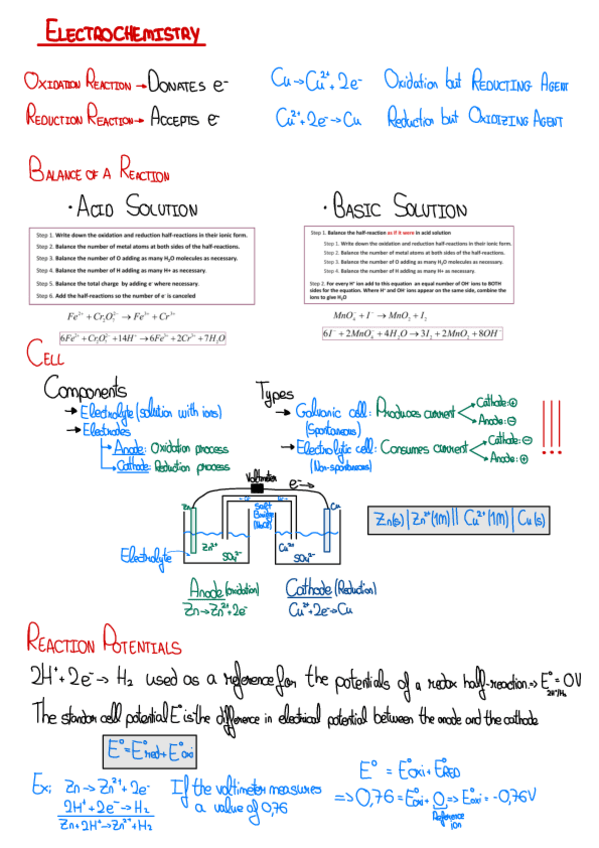 ELECTROCHEMISTRY
OXIDATION REACTION → DONATES e⁻
Cu → Cu²⁺ + 2e⁻ Oxidation but REDUCTING AGENT
REDUCTION REACTION → ACCEPTS e⁻
Cu²⁺ + 2e⁻ → Cu Reduction but OXIDIZING AGENT
BALANCE OF A REACTION
· ACID SOLUTION
Step 1. Write down the oxidation and reduction half-reactions in their ionic form.
Step 2. Balance the number of metal atoms at both sides of the half-reactions.
Step 3. Balance the number of O adding as many H₂O molecules as necessary.
Step 4. Balance the number of H adding as many H+ as necessary.
Step 5. Balance the total charge by adding e⁻ where necessary.
Step 6. Add the half-reactions so the number of e⁻ is canceled
Fe²⁺ + Cr₂O₇²⁻ → Fe³⁺ + Cr³⁺
6Fe²⁺ + Cr₂O₇²⁻ + 14H⁺ → 6Fe³⁺ + 2Cr³⁺ + 7H₂O
· BASIC SOLUTION
Step 1. Balance the half-reaction as if it were in acid solution
Step 1. Write down the oxidation and reduction half-reactions in their ionic form.
Step 2. Balance the number of metal atoms at both sides of the half-reactions.
Step 3. Balance the number of O adding as many H₂O molecules as necessary.
Step 4. Balance the number of H adding as many H+ as necessary.
Step 2. For every H⁺ ion add to this equation an equal number of OH⁻ ions to BOTH
sides for the equation. Where H⁺ and OH⁻ ions appear on the same side, combine the
ions to give H₂O
MnO₄⁻ + I⁻ → MnO₂ + I₂
6I⁻ + 2MnO₄⁻ + 4H₂O → 3I₂ + 2MnO₂ + 8OH⁻
CELL
Components
→ Electrolyte (solution with ions)
→ Electrodes
Anode: Oxidation process
Cathode: Reduction process
Types
→ Galvanic cell: Produces current
(Spontaneous)
Cathode: ⊕
Anode: ⊖
→ Electrolytic cell: Consumes current
(Non-spontaneous)
Cathode: ⊖
Anode: ⊕
!!!
Voltmeter
e⁻ →
Zn
Salt
Bridge
Cu
Zn²⁺
SO₄²⁻
Cu²⁺
SO₄²⁻
Electrolyte
Zn(s) | Zn²⁺(1M) || Cu²⁺(1M) | Cu(s)
Anode (oxidation)
Zn → Zn²⁺ + 2e⁻
Cathode (Reduction)
Cu²⁺ + 2e⁻ → Cu
REACTION POTENTIALS
2H⁺ + 2e⁻ → H₂ used as a reference for the potentials of a redox half-reaction ⇒ E° = 0V
2H⁺/H₂
The standar cell potential E° is the difference in electrical potential between the anode and the cathode
E° = E°red + E°oxi
Ex: Zn → Zn²⁺ + 2e⁻
2H⁺ + 2e⁻ → H₂
Zn + 2H⁺ → Zn²⁺ + H₂
If the voltimeter measures
a value of 0,76
E° = E°oxi + E°RED
=> 0,76 = E°oxi + 0 => E°oxi = -0,76V
Reference
ion